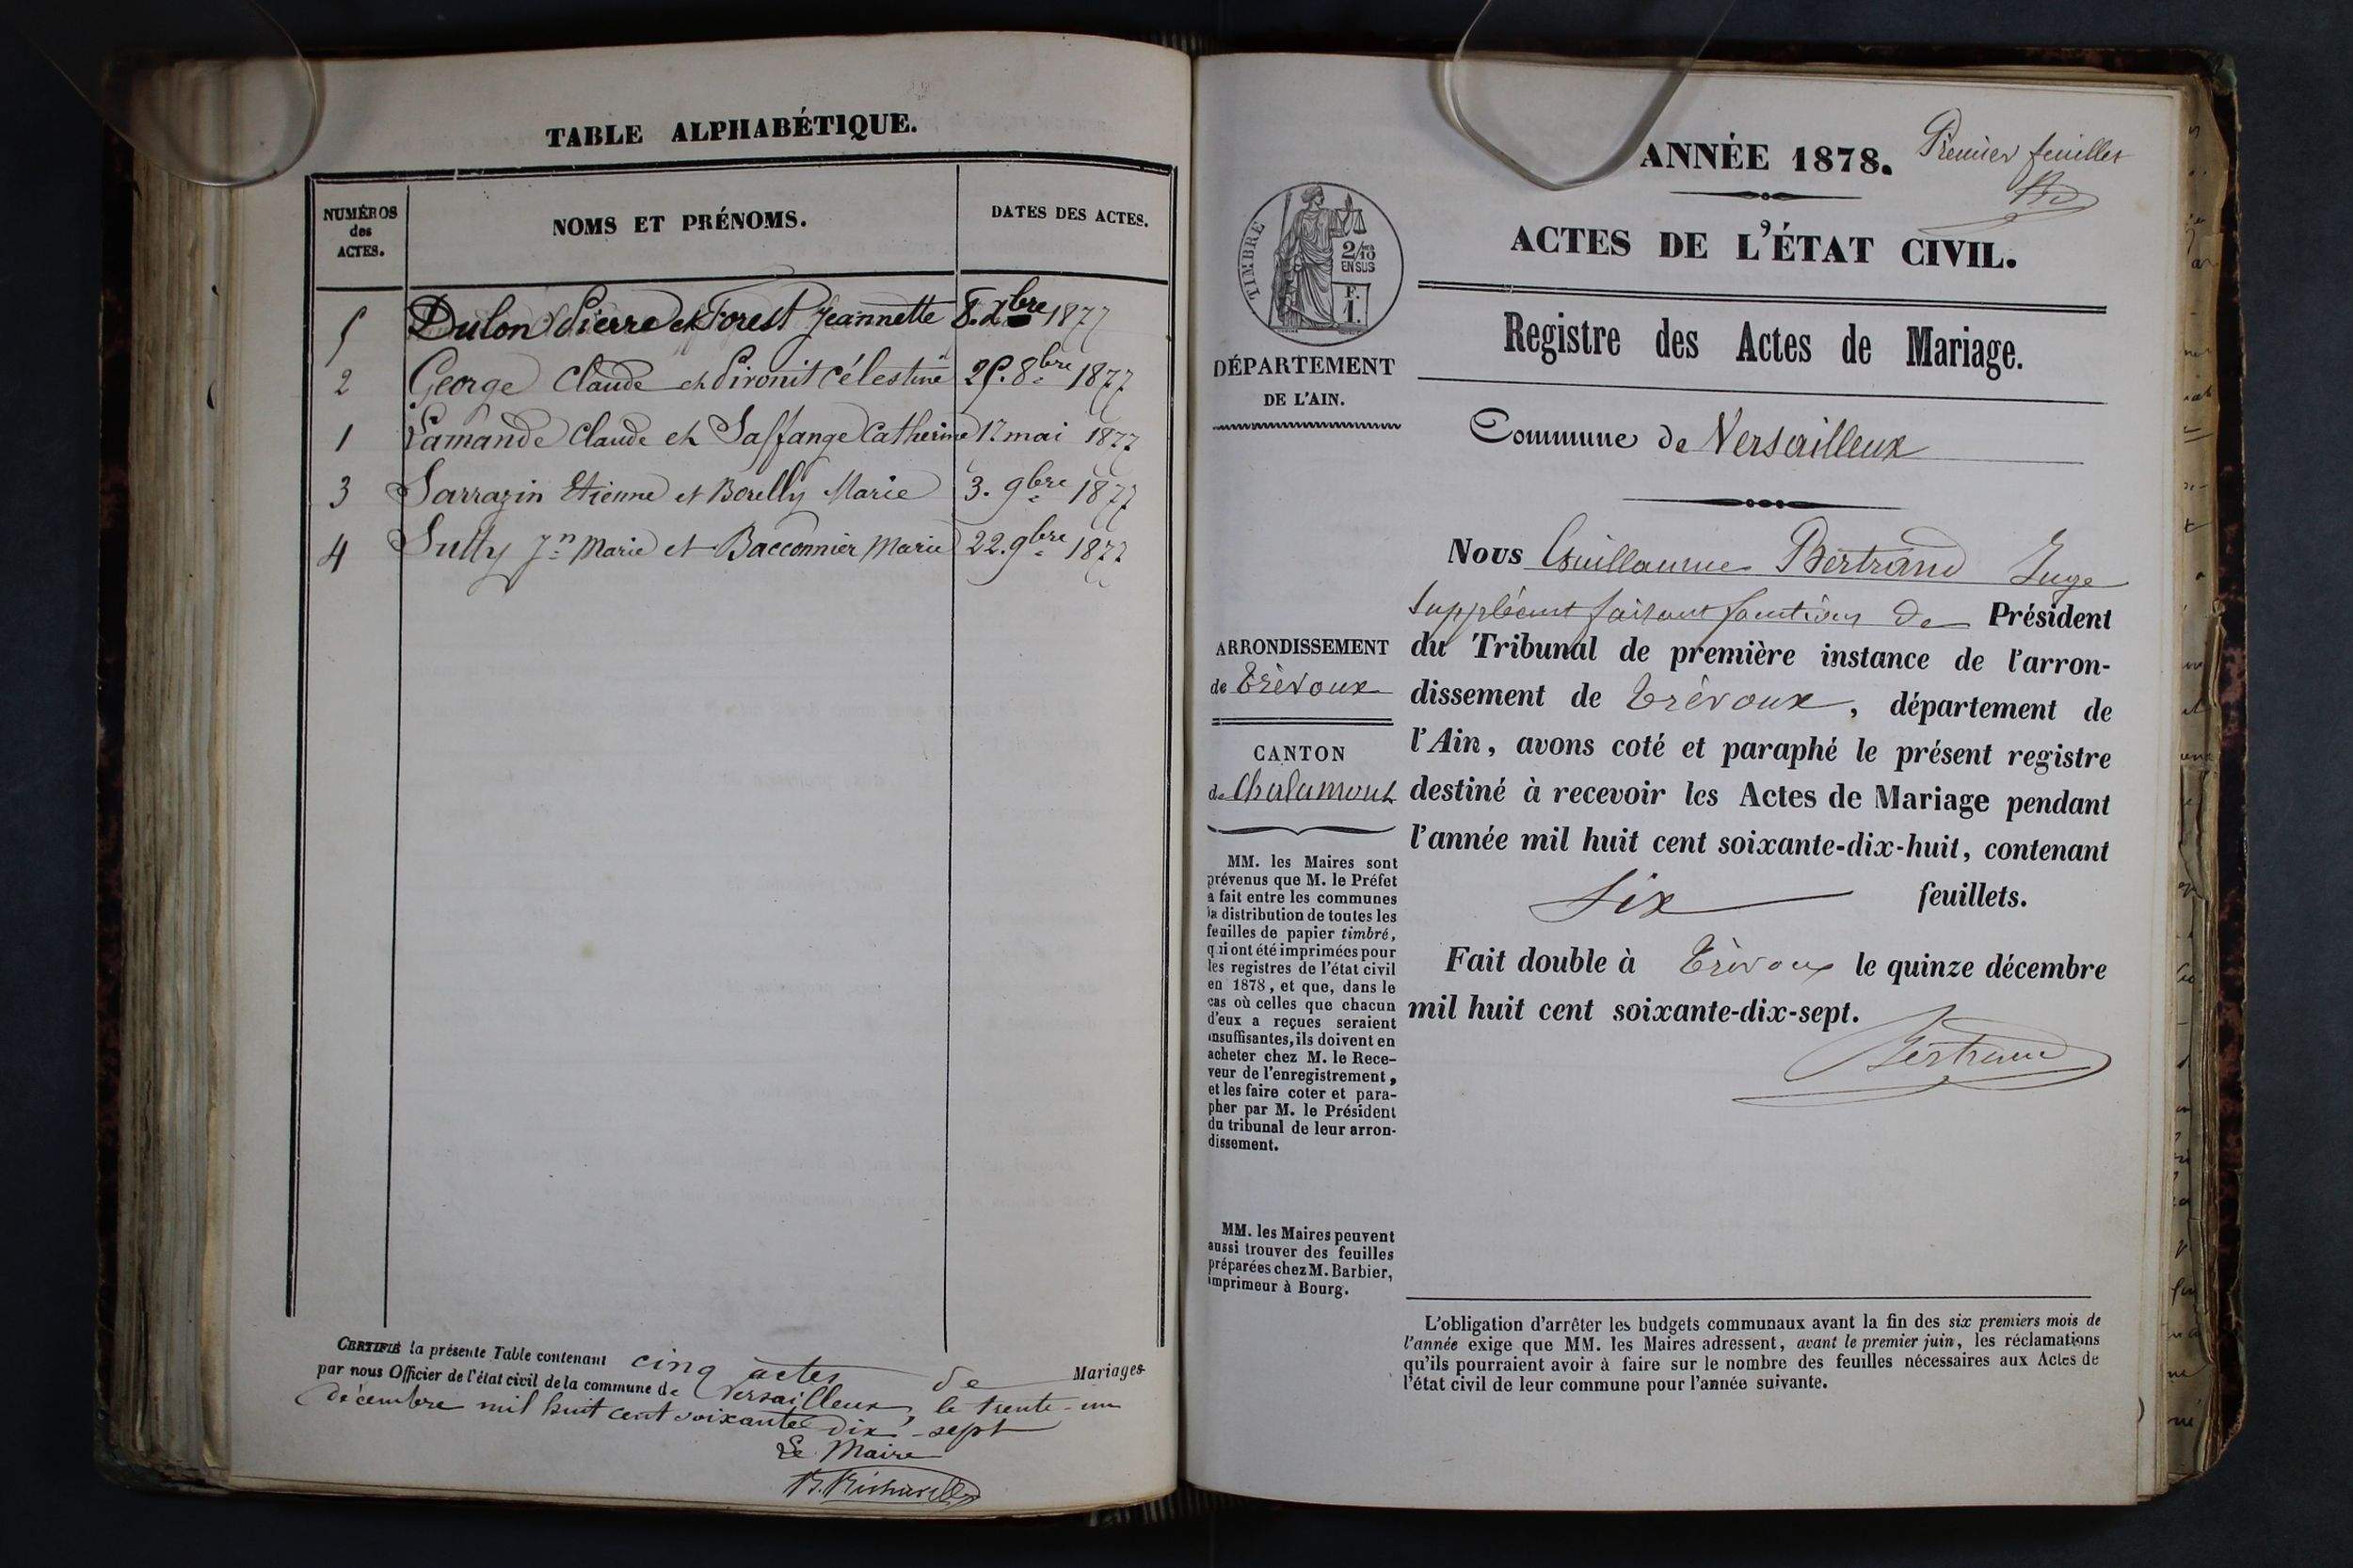 TABLE ALPHABÉTIQUE.
NUMÉROS
des
ACTES.
NOMS ET PRÉNOMS.
DATES DES ACTES.
5 Dulon Pierre et Forest Jeannette 8. Xbre 1877
2 George Claude et Pironit Célestine 25. 8bre 1877
1 Lamande Claude et Saffange Catherine 17 mai 1877
3 Sarrazin Etienne et Borelly Marie 3. 9bre 1877
4 Sutty Jn Marie et Bacconnier Marie 22. 9bre 1877
CERTIFIÉ la présente Table contenant cinq actes de Mariages
par nous Officier de l'état civil de la commune de Versailleux, le trente-un
décembre mil huit cent soixante dix-sept
Le Maire
ANNÉE 1878.
Premier feuillet
ACTES DE L'ÉTAT CIVIL.
TIMBRE
2/10
EN SUS
F.
1.
DÉPARTEMENT
DE L'AIN.
Registre des Actes de Mariage.
Commune de Versailleux
Nous Guillaume Bertrand Juge
Suppléant faisant fonctions de Président
du Tribunal de première instance de l'arron-
dissement de Trévoux, département de
l'Ain, avons coté et paraphé le présent registre
destiné à recevoir les Actes de Mariage pendant
l'année mil huit cent soixante-dix-huit, contenant
Six feuillets.
Fait double à Trévoux le quinze décembre
mil huit cent soixante-dix-sept.
Bertrand
ARRONDISSEMENT
de Trévoux
CANTON
de Chalamont
MM. les Maires sont
prévenus que M. le Préfet
a fait entre les communes
la distribution de toutes les
feuilles de papier timbré,
qui ont été imprimées pour
les registres de l'état civil
en 1878, et que, dans le
cas où celles que chacun
d'eux a reçues seraient
insuffisantes, ils doivent en
acheter chez M. le Rece-
veur de l'enregistrement,
et les faire coter et para-
pher par M. le Président
du tribunal de leur arron-
dissement.
MM. les Maires peuvent
aussi trouver des feuilles
préparées chez M. Barbier,
imprimeur à Bourg.
L'obligation d'arrêter les budgets communaux avant la fin des six premiers mois de
l'année exige que MM. les Maires adressent, avant le premier juin, les réclamations
qu'ils pourraient avoir à faire sur le nombre des feuilles nécessaires aux Actes de
l'état civil de leur commune pour l'année suivante.